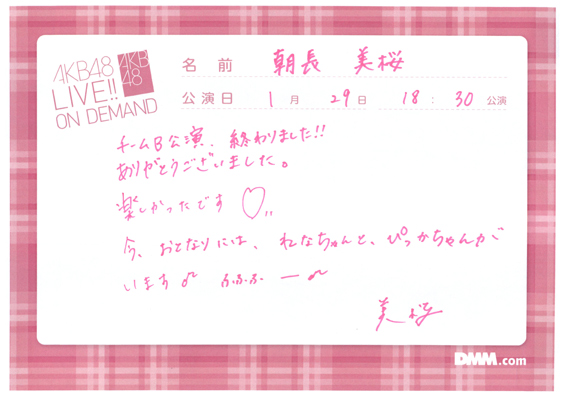 AKB48
LIVE!!
ON DEMAND
AKB
48
名前 朝長 美桜
公演日 1月 29日 18:30公演
チームB公演、終わりました!!
ありがとうございました。
楽しかったです♡,,
今、おとなりには、れなちゃんと、ぴっかちゃんが
います♫ ふふふー♫
美桜
DMM.com